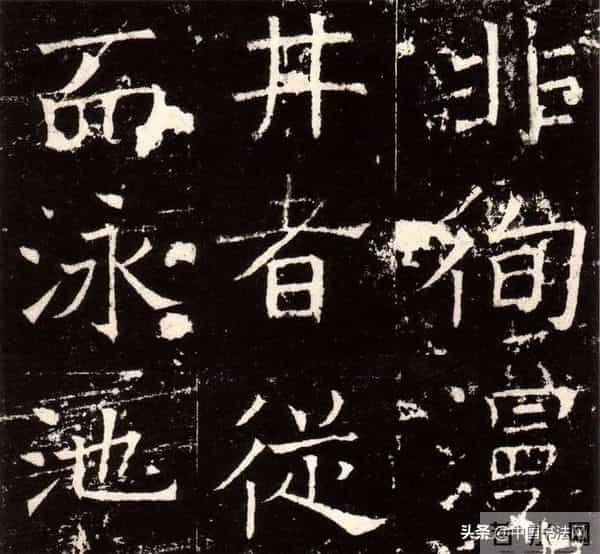 非徇漫
丼者從
而泳池
头条 @中国书法网